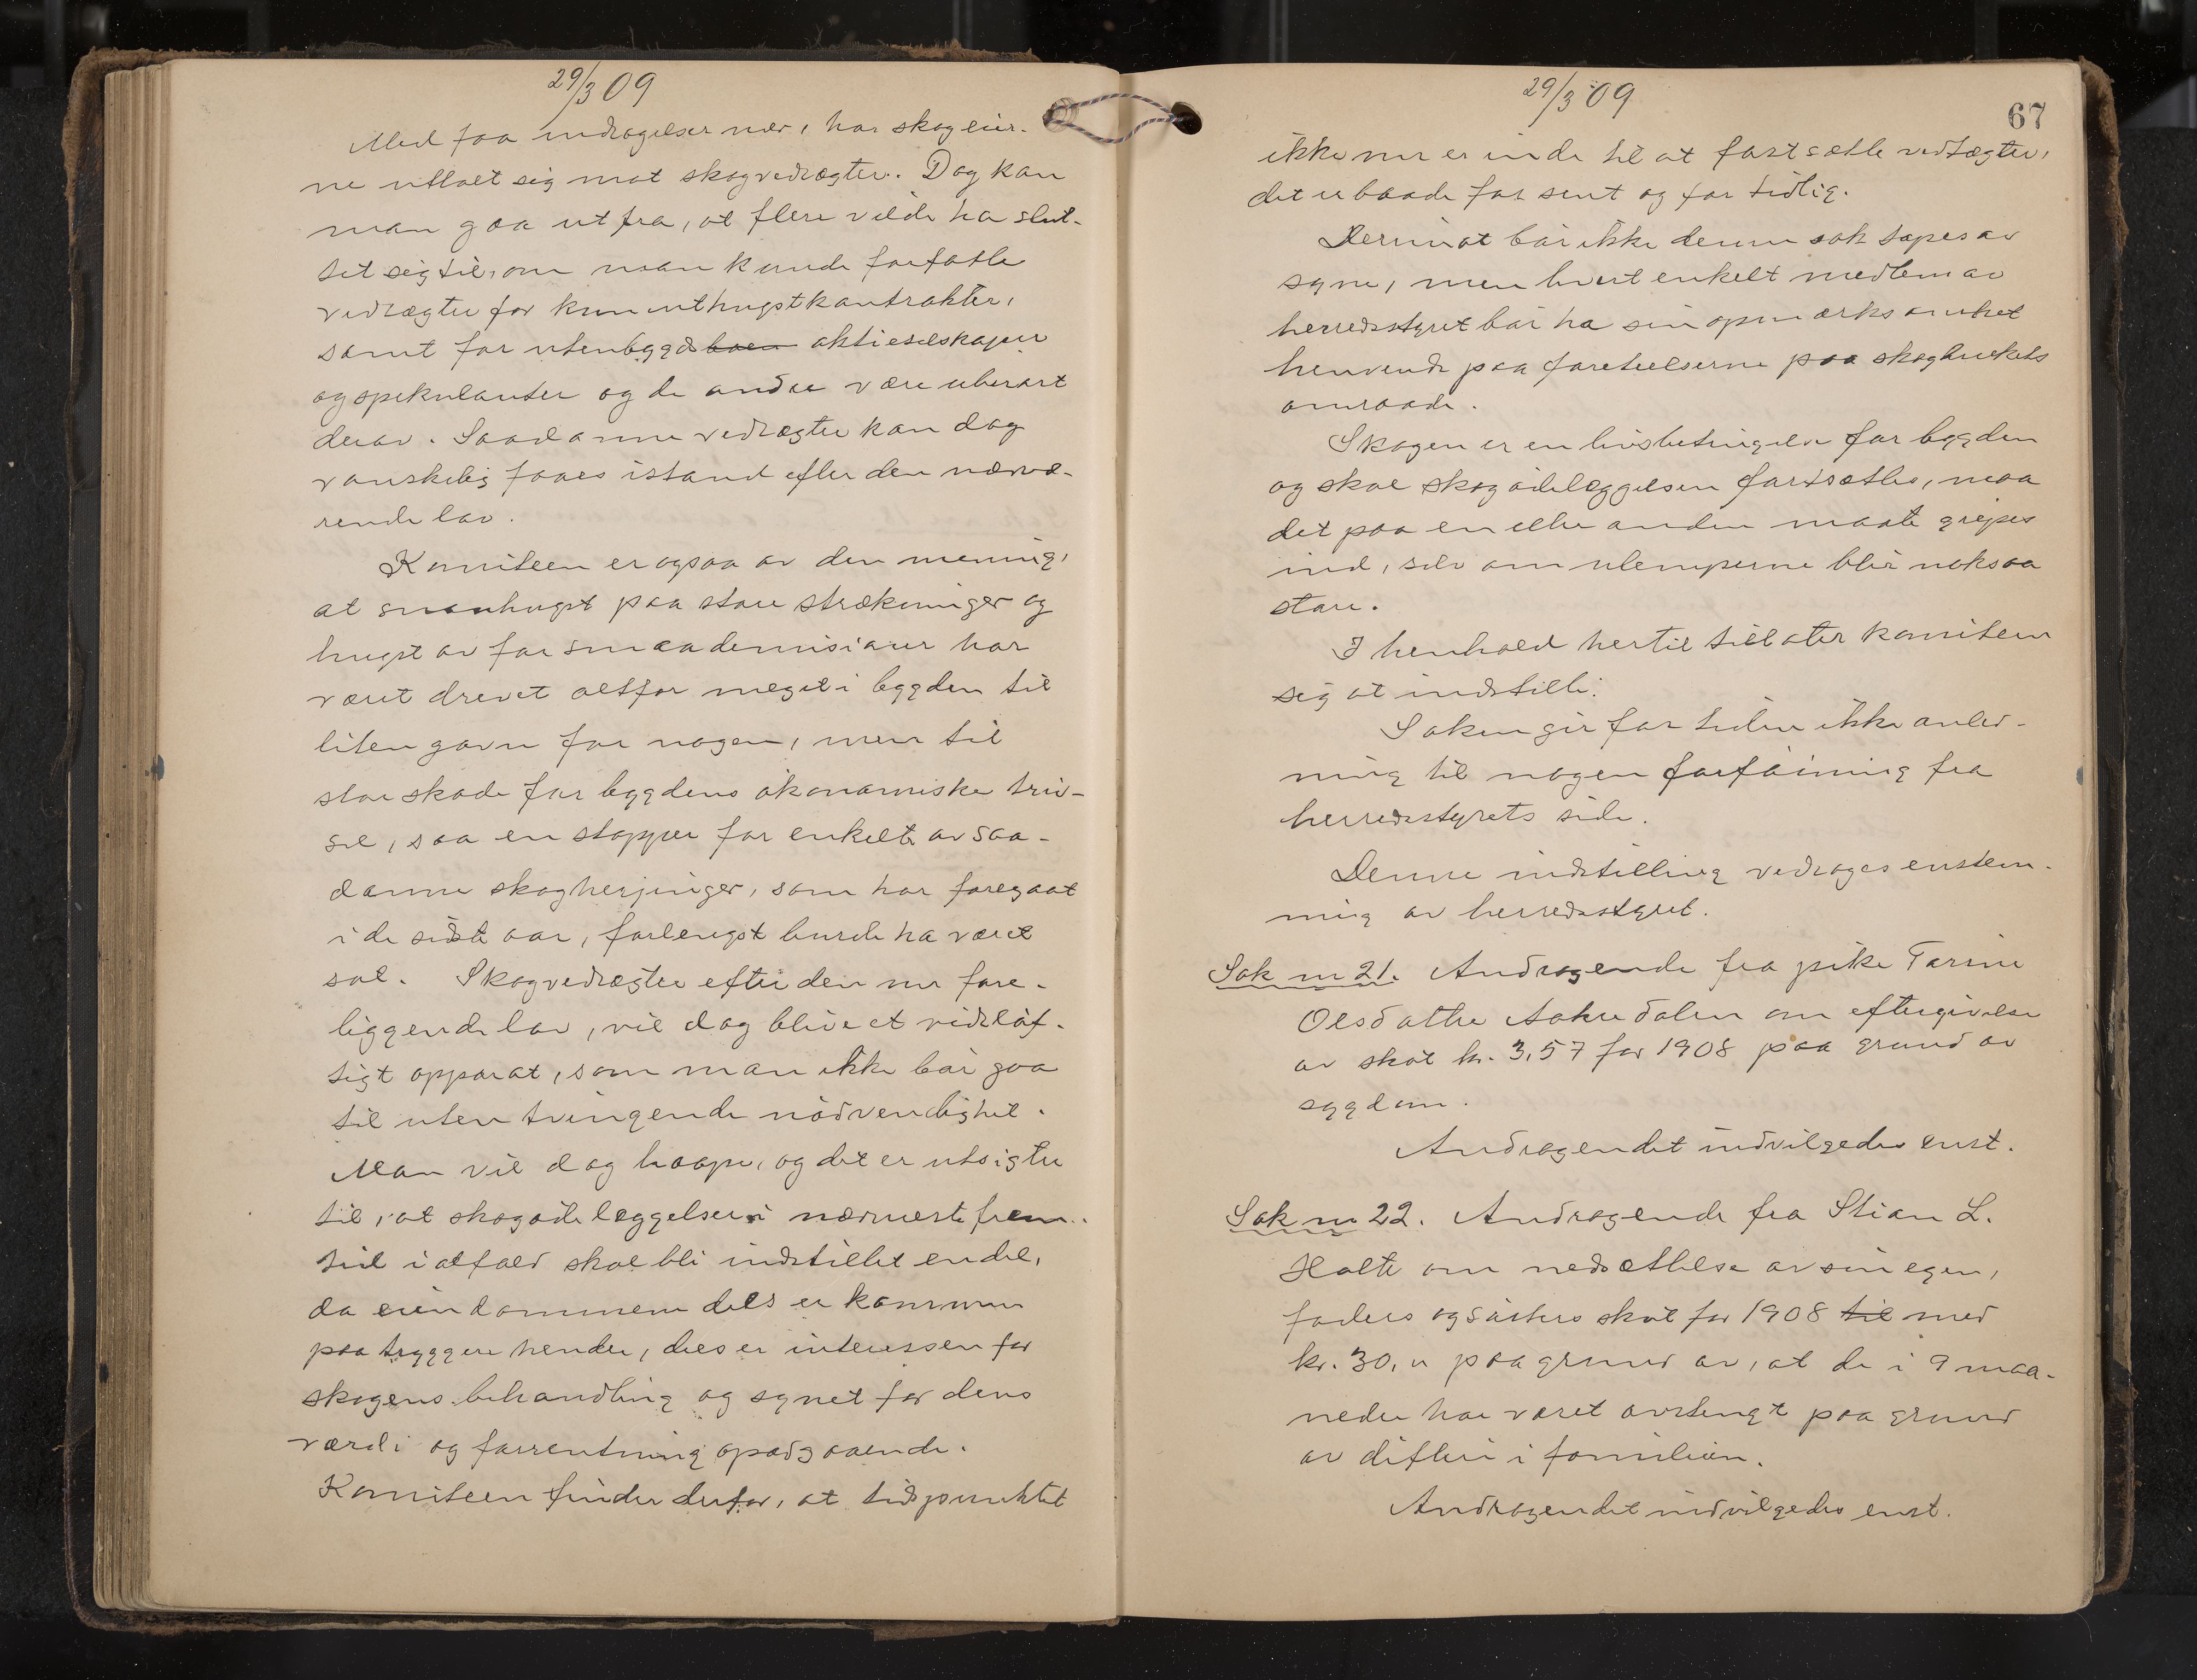 29/3 09
Med faa indragelser nær, har skogeier-
ne uttalt sig mot skogvedtægter. Dog kan
man gaa ut fra, at flere vilde ha slut-
tet sig til, om man kunde forfatte
vedtægter for kun uthugstkontrakter,
samt for utenbygds boen aktieselskaper
og spekulanter og de andre være uberørt
derav. Saadanne vedtægter kan dog
vanskelig faaes istand efter den nærvæ-
rende lov.
Komiteen er ogsaa av den mening,
at snauhugst paa store strækninger og
hugst av for smaa dimisioner har
været drevet altfor meget i bygden til
liten gavn for nogen, men til
stor skade for bygdens økonomiske triv-
sel, saa en stopper for enkelte av saa-
danne skogherjinger, som har foregaat
i de sidste aar, forlengst burde ha været
sat. Skogvedtægter efter den nu fore-
liggende lov, vil dog blive et vidtløf-
tigt apparat, som man ikke bør gaa
til uten tvingende nødvendighet.
Man vil dog haape, og det er utsigter
til, at skogødelæggelser i nærmeste frem-
tid ialfald skal bli indstillet endel,
da eiendommene dels er kommen
paa tryggere hender, dels er interessen for
skogens behandling og synet for dens
værdi og forrentning opadgaaende.
Komiteen finder derfor, at tidspunktet
29/3 09
67
ikke nu er inde til at fastsætte vedtægter,
det er baade for sent og for tidlig.
Derimot bør ikke denne sak tapes av
syne, men hvert enkelt medlem av
herredsstyret bør ha sin opmærksomhet
henvendt paa foreteelserne paa skogbrukets
omraade.
Skogen er en livsbetingelse for bygden
og skal skogødelæggelsen fortsættes, maa
det paa en eller anden maate gripes
ind, selv om ulemperne blir noksaa
store.
I henhold hertil tillater komiteen
sig at indstille:
Saken gir for tiden ikke anled-
ning til nogen forføining fra
herredsstyrets side.
Denne indstilling vedtages enstem-
mig av herredsstyret.
Sak nr 21. Andragende fra pike Tarine
Olsdatter Aakredalen om eftergivelse
av skat kr. 3,57 for 1908 paa grund av
sygdom.
Andragendet indvilgedes enst.
Sak nr 22. Andragende fra Stian L.
Holte om nedsættelse av sin egen,
faders og søsters skat for 1908 til med
kr. 30," paa grund av, at de i 9 maa-
neder har været avstengt paa grund
av difteri i familien.
Andragendet indvilgedes enst.